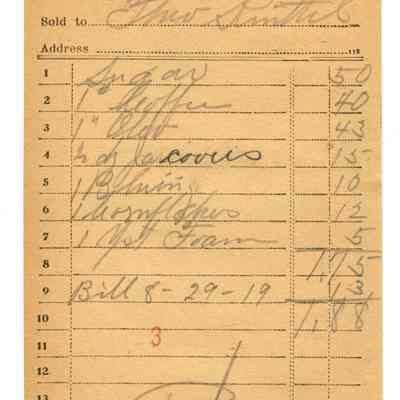 Sold to Theo Smith
Address
1 Sugar 50
2 1 " Coffee 40
3 1 " Oleo 43
4 ½ dz Jar covers 15
5 1 Bluing 10
6 1 Cornflakes 12
7 1 Yst Foam 5
8 1.75
9 Bill 8-29-19 13
10 1.88
3
11
12
13